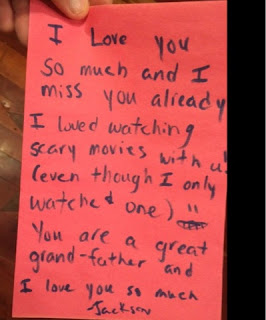 I Love you
so much and I
miss you already
I loved watching
scary movies with u!
(even though I only
watched one) !!
You are a great
grand-father and
I love you so much
-Jackson